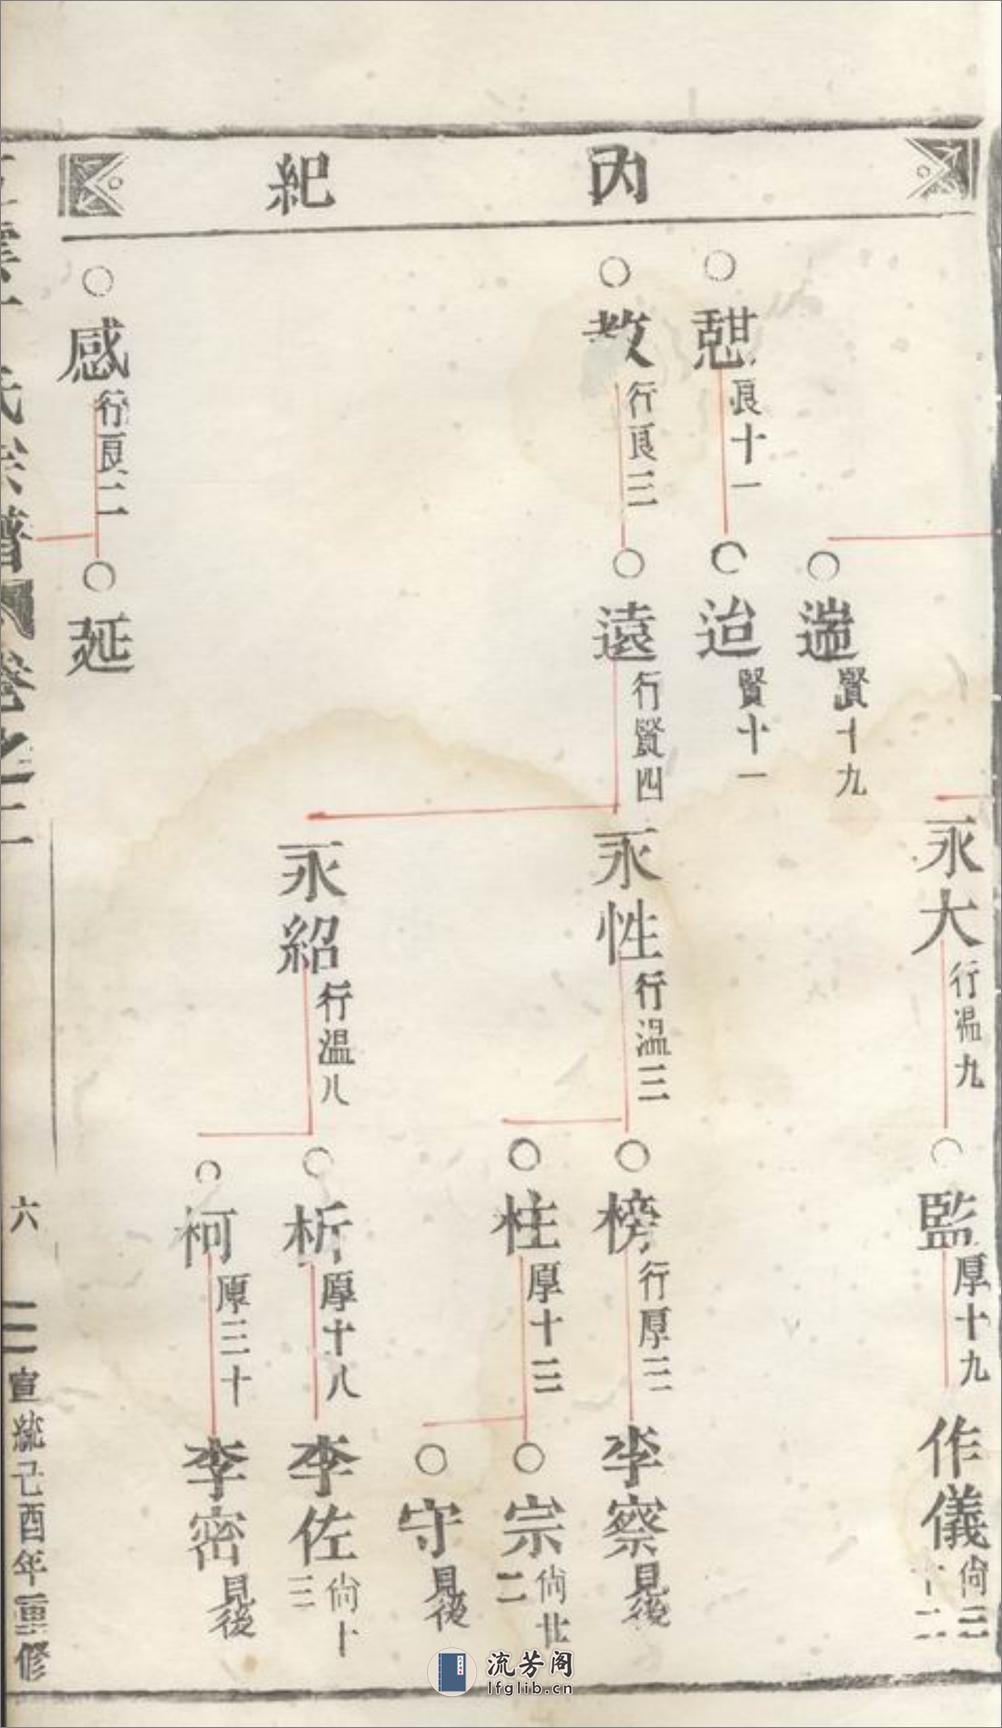 內紀
遄 賢十九
永大 行溫九
監 厚十九
作儀 尙三十二
憇 良十一
迨 賢十一
教 行良三
遠 行賢四
永性 行溫三
榜 行厚三
李察 見後
柱 厚十三
宗 尙北二
守 見後
永紹 行溫八
析 厚十八
李佐 尙十三
柯 厚三十
李密 見後
感 行良二
延
氏宗譜
卷之二
六
宣統己酉年重修
流芳阁
lfglib.cn